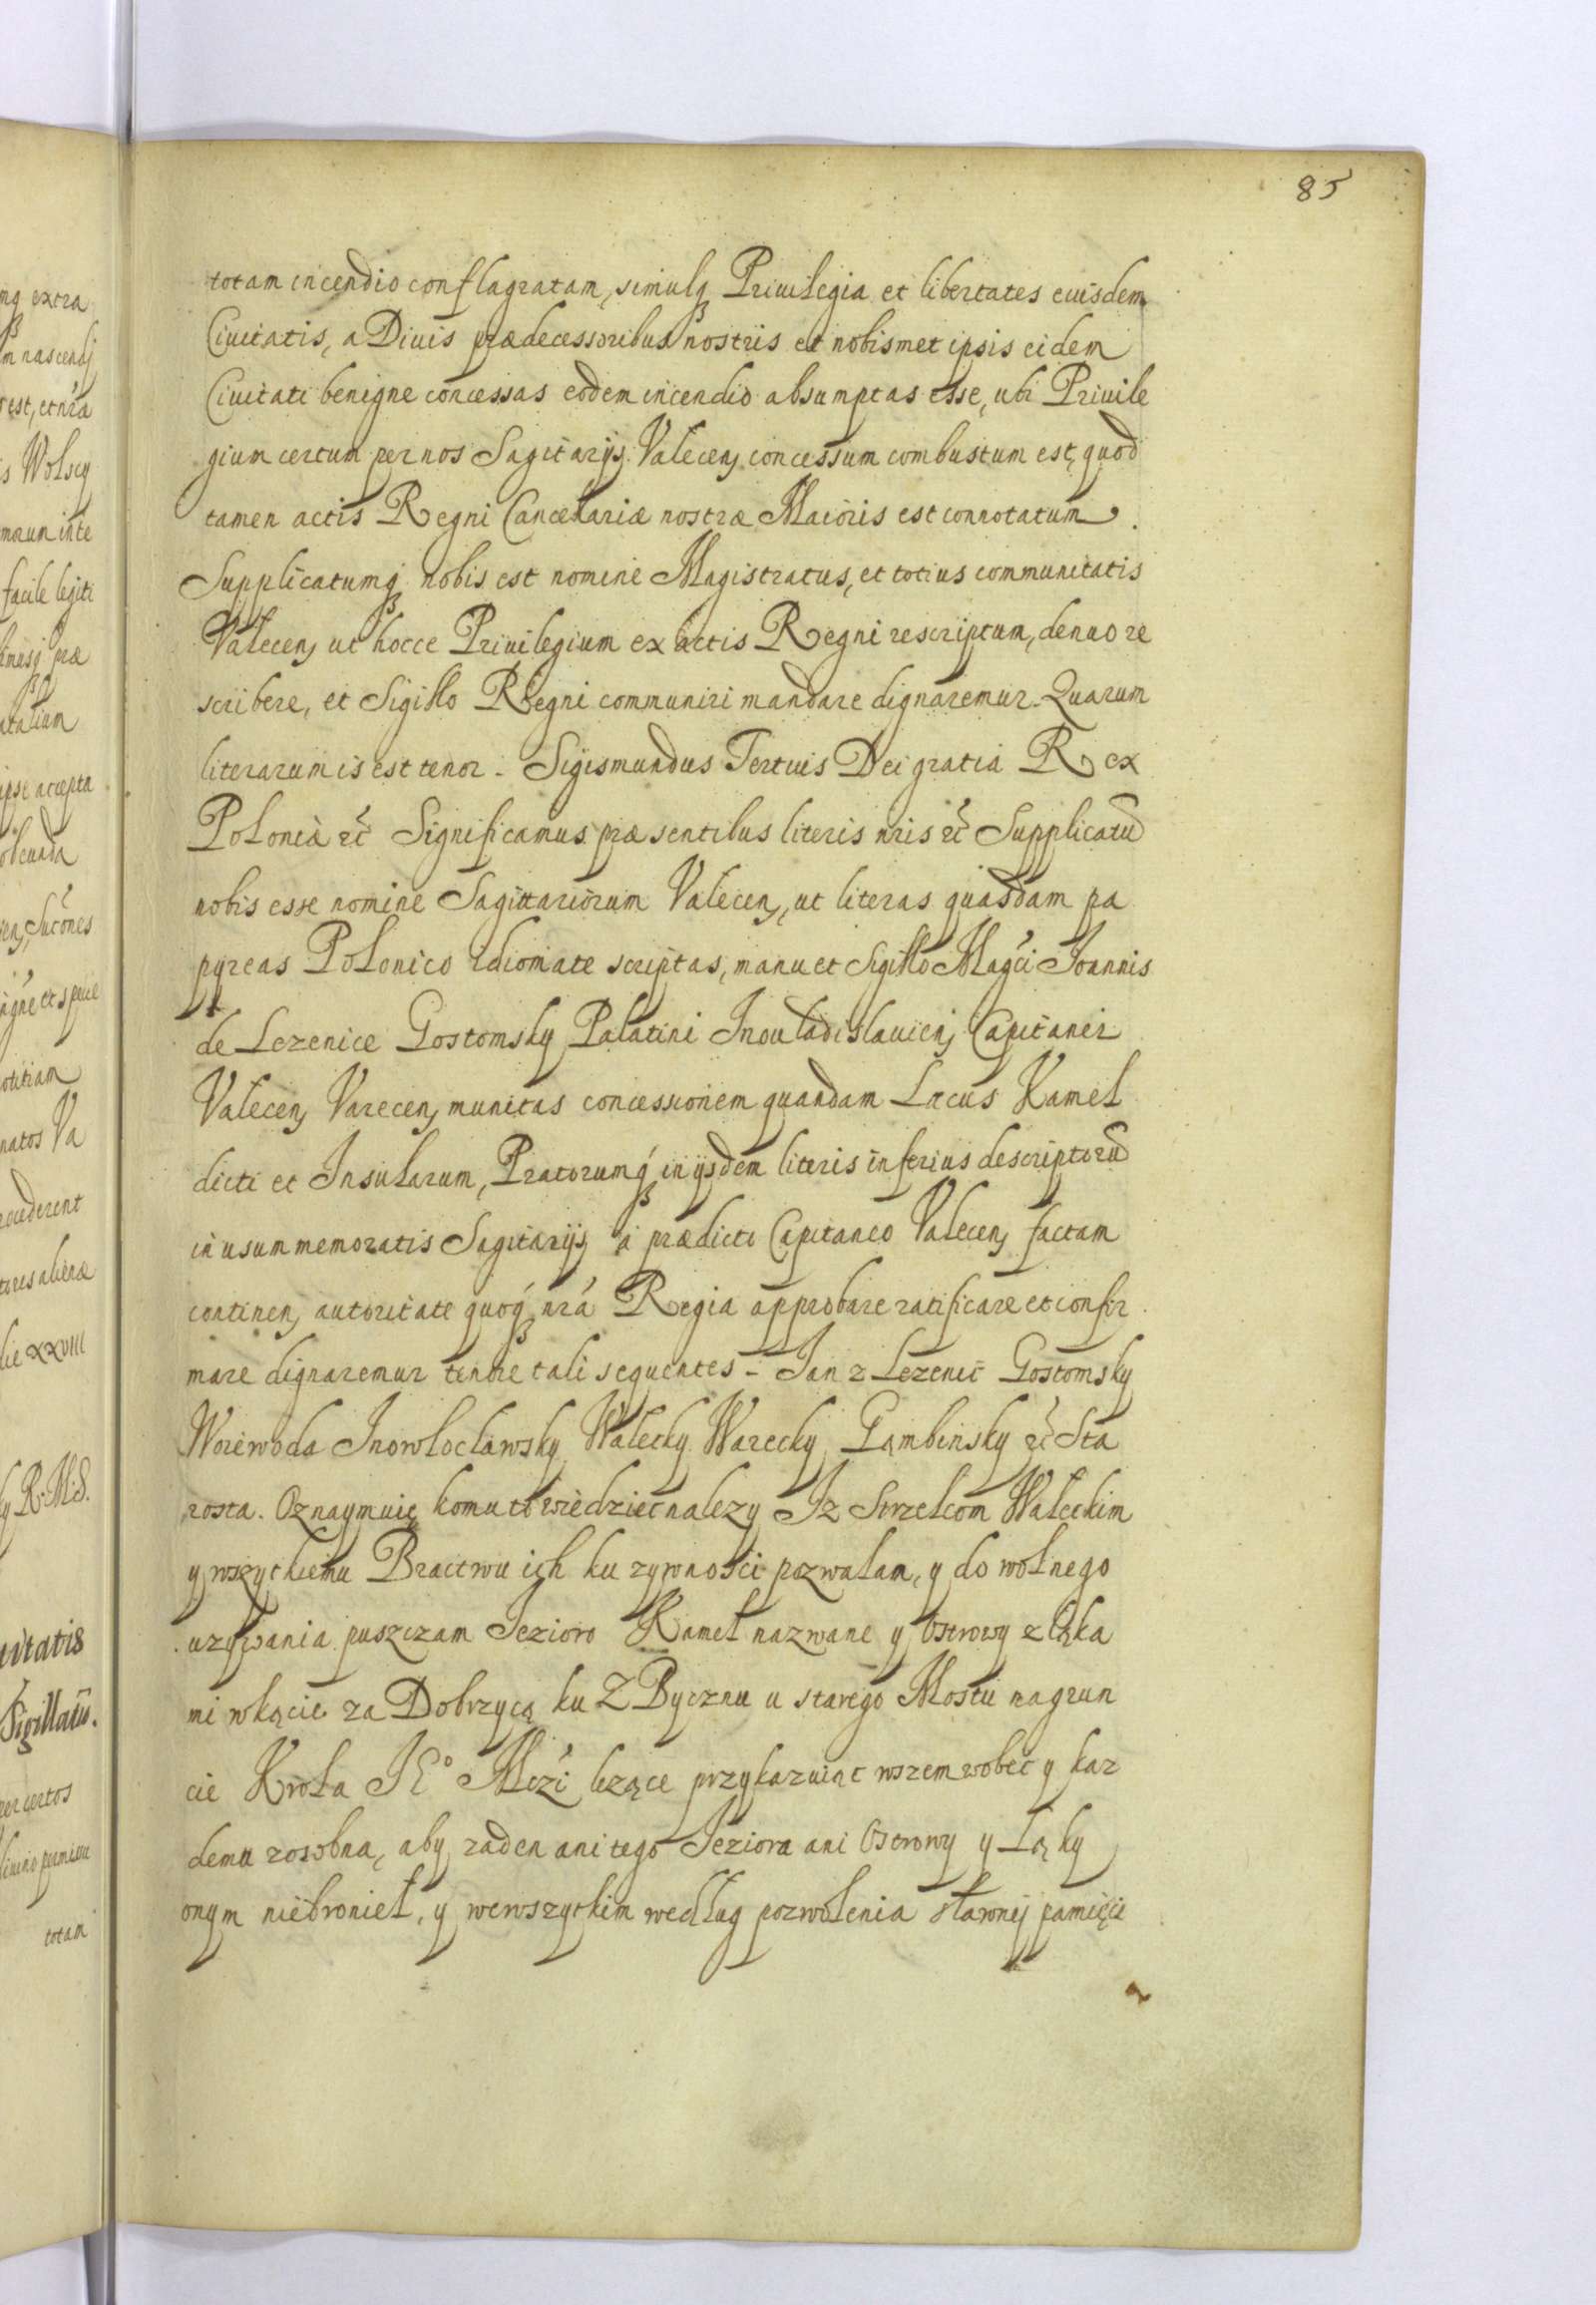 85
totam incendio conflagratam, simulq Priuilegia et libertates euisdem
Ciuitatis, a Diuis prædecessoribus nostris et nobismet ipsis eidem
Ciuitati benigne concessas eodem incendio absumptas esse, ubi Priuile
gium certum per nos Sagitarijs Valecen, concessum combustum est, quod
tamen actis Regni Cancellariæ nostræ Maioris est connotatum.
Supplicatumq nobis est nomine Magistratus, et totius communitatis
Valecen, ut hocce Priuilegium ex actis Regni rescriptum, denuo re
scribere, et Sigillo Regni communiri mandare dignaremur. Quarum
literarum is est tenor. Sigismundus Tertius Dei gratia Rex
Poloniæ etc Significamus præsentibus literis nris etc Supplicatū
nobis esse nomine Sagittariorum Valecen, ut literas quasdam pa
pyreas Polonico idiomate scriptas, manu et Sigillo Magci Joannis
de Lezenice Gostomsky Palatini Inouladislauien, Capitanei
Valecen, Varecen, munitas concessionem quandam Lacus Kamel
dicti et Insularum, Pratorumq in ijsdem literis inferius descriptorū
in usum memoratis Sagitarijs a prædicto Capitaneo Valecen, factam
continen, autoritate quoq nrá Regia approbare ratificare et confir
mare dignaremur tenore tali sequentes - Jan z Lezenic Gostomsky
Woiewoda Inowloclawsky Walecky Warecky Gąmbinsky etc Sta
rosta. Oznaymuię komu to wiedziec nalezy Iz Strzelcom Waleckim
y wszytkiemu Bractwu ich ku zywnosci pozwalam, y do wolnego
uzywania puszczam Iezioro Kamel nazwane y Ostrowy z łąka
mi w kącie za Dobrzycą ku Z Bycznu u starego Mostu na grun
cie Krola JE° Mczi lezące przykazuiąc wszem wobec y kaz
demu zosobna, aby zaden ani tego Ieziora ani Ostrowy y Łąky
onym niebroniel, y wewszytkim według pozwolenia sławnej pamięci